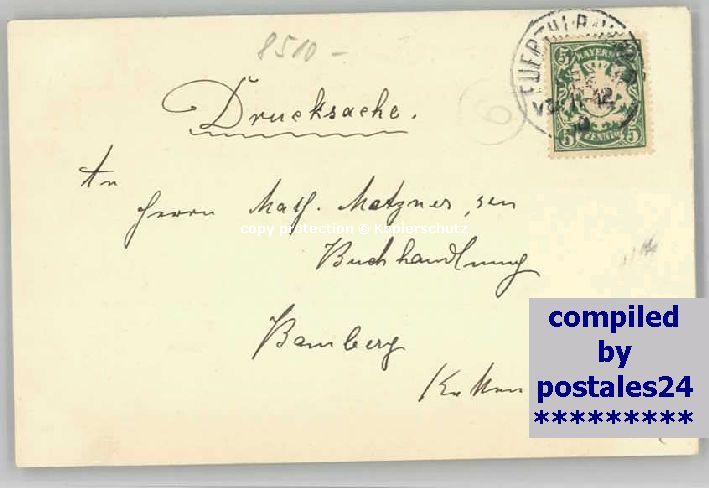 8510 -
Drucksache.
6
5 BAYERN 5
5 PFENNIG 5
An
Herrn Math. Metzner, sen
copy protection © Kopierschutz
Buchhandlung
Bamberg
compiled
by
postales24
*********